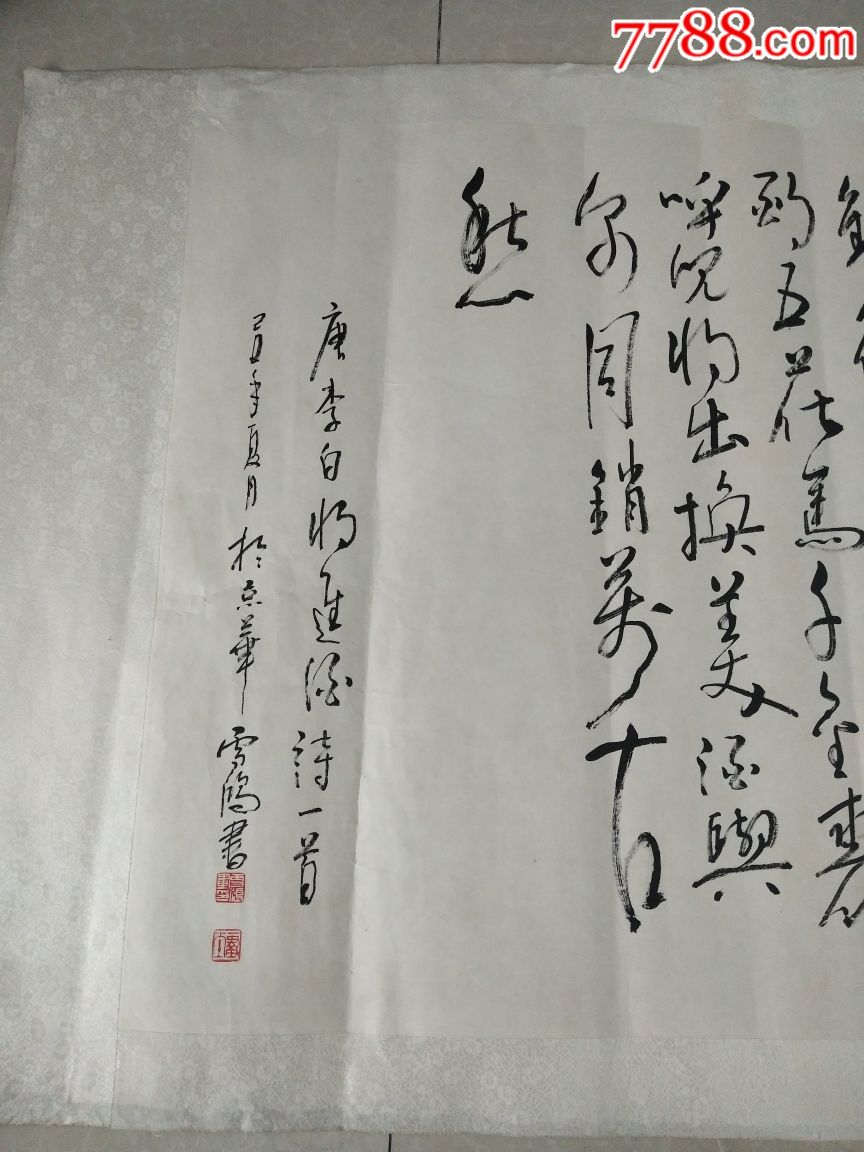 7788.com
酌五花馬千金裘
呼兒將出換美酒與
爾同銷萬古
愁
唐李白將進酒詩一首
己丑年夏月於京華雪書